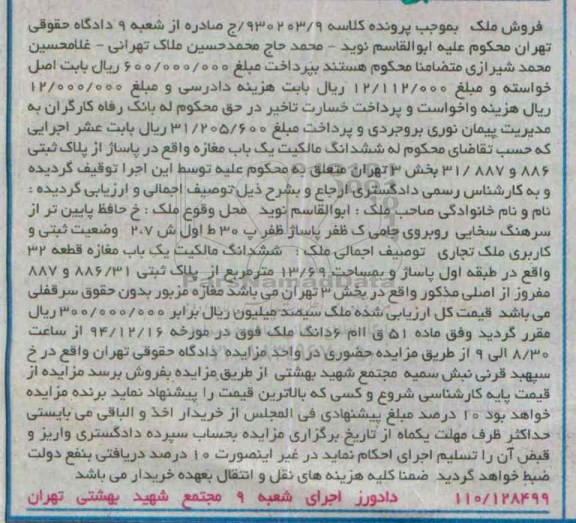 فروش ملک بموجب پرونده کلاسه ۹۳۰۲۰۳/۹/ج صادره از شعبه ۹ دادگاه حقوقی
تهران محکوم علیه ابوالقاسم نوید - محمد حاج محمدحسین ملاک تهرانی - غلامحسین
محمد شیرازی متضامنا محکوم هستند بپرداخت مبلغ ۶۰۰/۰۰۰/۰۰۰ ریال بابت اصل
خواسته و مبلغ ۱۲/۱۱۲/۰۰۰ ریال بابت هزینه دادرسی و مبلغ ۱۲/۰۰۰/۰۰۰
ریال هزینه واخواست و پرداخت خسارت تاخیر در حق محکوم له بانک رفاه کارگران به
مدیریت پیمان نوری بروجردی و پرداخت مبلغ ۳۱/۲۰۵/۶۰۰ ریال بابت عشر اجرایی
که حسب تقاضای محکوم له ششدانگ مالکیت یک باب مغازه واقع در پاساژ از پلاک ثبتی
۸۸۶ و ۸۸۷ /۳۱ بخش ۳ تهران متعلق به محکوم علیه توسط این اجرا توقیف گردیده
و به کارشناس رسمی دادگستری ارجاع و بشرح ذیل توصیف اجمالی و ارزیابی گردیده :
نام و نام خانوادگی صاحب ملک : ابوالقاسم نوید محل وقوع ملک : خ حافظ پایین تر از
سرهنگ سخایی روبروی جامی ک ظفر پاساژ ظفر پ ۳۰ ط اول ش ۲۰۷ وضعیت ثبتی و
کاربری ملک تجاری توصیف اجمالی ملک : ششدانگ مالکیت یک باب مغازه قطعه ۳۲
واقع در طبقه اول پاساژ و بمساحت ۱۳/۶۹ مترمربع از پلاک ثبتی ۸۸۶/۳۱ و ۸۸۷
مفروز از اصلی مذکور واقع در بخش ۳ تهران می باشد مغازه مزبور بدون حقوق سرقفلی
می باشد قیمت کل ارزیابی شده ملک سیصد میلیون ریال برابر ۳۰۰/۰۰۰/۰۰۰ ریال
مقرر گردید وفق ماده ۵۱ ق اام ۶دانگ ملک فوق در مورخه ۹۴/۱۲/۱۶ از ساعت
۸/۳۰ الی ۹ از طریق مزایده حضوری در واحد مزایده دادگاه حقوقی تهران واقع در خ
سپهبد قرنی نبش سمیه مجتمع شهید بهشتی از طریق مزایده بفروش برسد مزایده از
قیمت پایه کارشناسی شروع و کسی که بالاترین قیمت را پیشنهاد نماید برنده مزایده
خواهد بود ۱۰ درصد مبلغ پیشنهادی فی المجلس از خریدار اخذ و الباقی می بایستی
حداکثر ظرف مهلت یکماه از تاریخ برگزاری مزایده بحساب سپرده دادگستری واریز و
قبض آن را تسلیم اجرای احکام نماید در غیر اینصورت ۱۰ درصد دریافتی بنفع دولت
ضبط خواهد گردید ضمنا کلیه هزینه های نقل و انتقال بعهده خریدار می باشد
۱۱۰/۱۲۸۴۹۹ دادورز اجرای شعبه ۹ مجتمع شهید بهشتی تهران